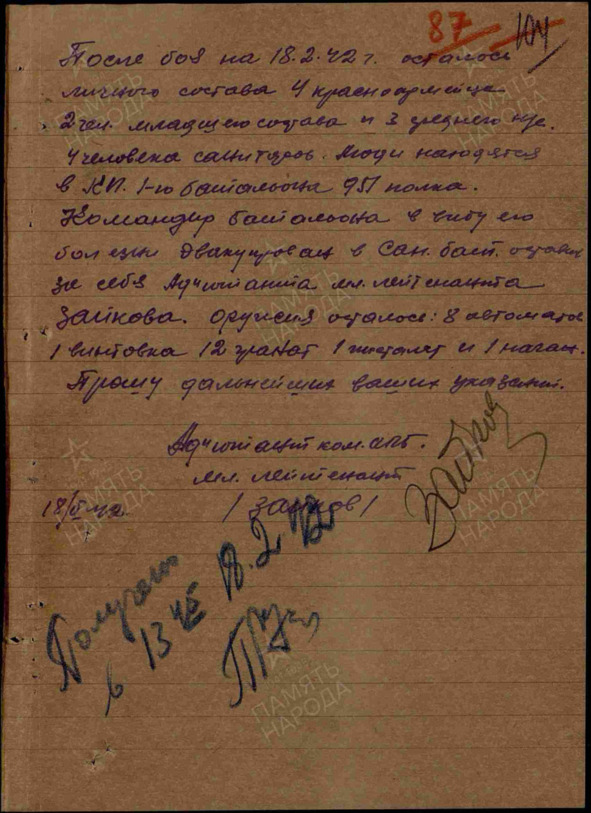 87
После боя на 18.2.42 г. осталось
личного состава 4 красноармейца
2 чел. младшего состава и 3 среднего нус.
4 человека санитаров. Люди находятся
в КП. 1-го батальона 951 полка.
Командир батальона в виду его
болезни эвакуирован в Сан. бат. оставил
за себя Адъютанта мл. лейтенанта
Зайкова. оружия осталось: 8 автоматов
1 винтовка 12 гранат 1 пистолет и 1 наган.
Прошу дальнейших ваших указаний.
Адъютант ком.
мл. лейтенант
/ Зайков /
Зайков
18/II
Получено
в 13 45 18.2.42
ПАМЯТЬ
НАРОДА
ПАМЯТЬ
НАРОДА
ПАМЯТЬ
НАРОДА
ПАМЯТЬ
НАРОДА
ПАМЯТЬ
НАРОДА